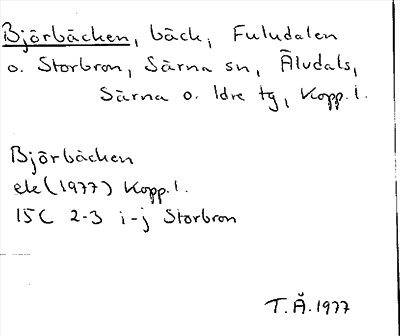 Björbäcken, bäck, Fuludalen
o. Storbron, Särna sn, Älvdals,
Särna o. Idre tg, Kopp. l.
Björbäcken
ek (1977) Kopp. l.
15C 2-3 i-j Storbron
T.Å. 1977